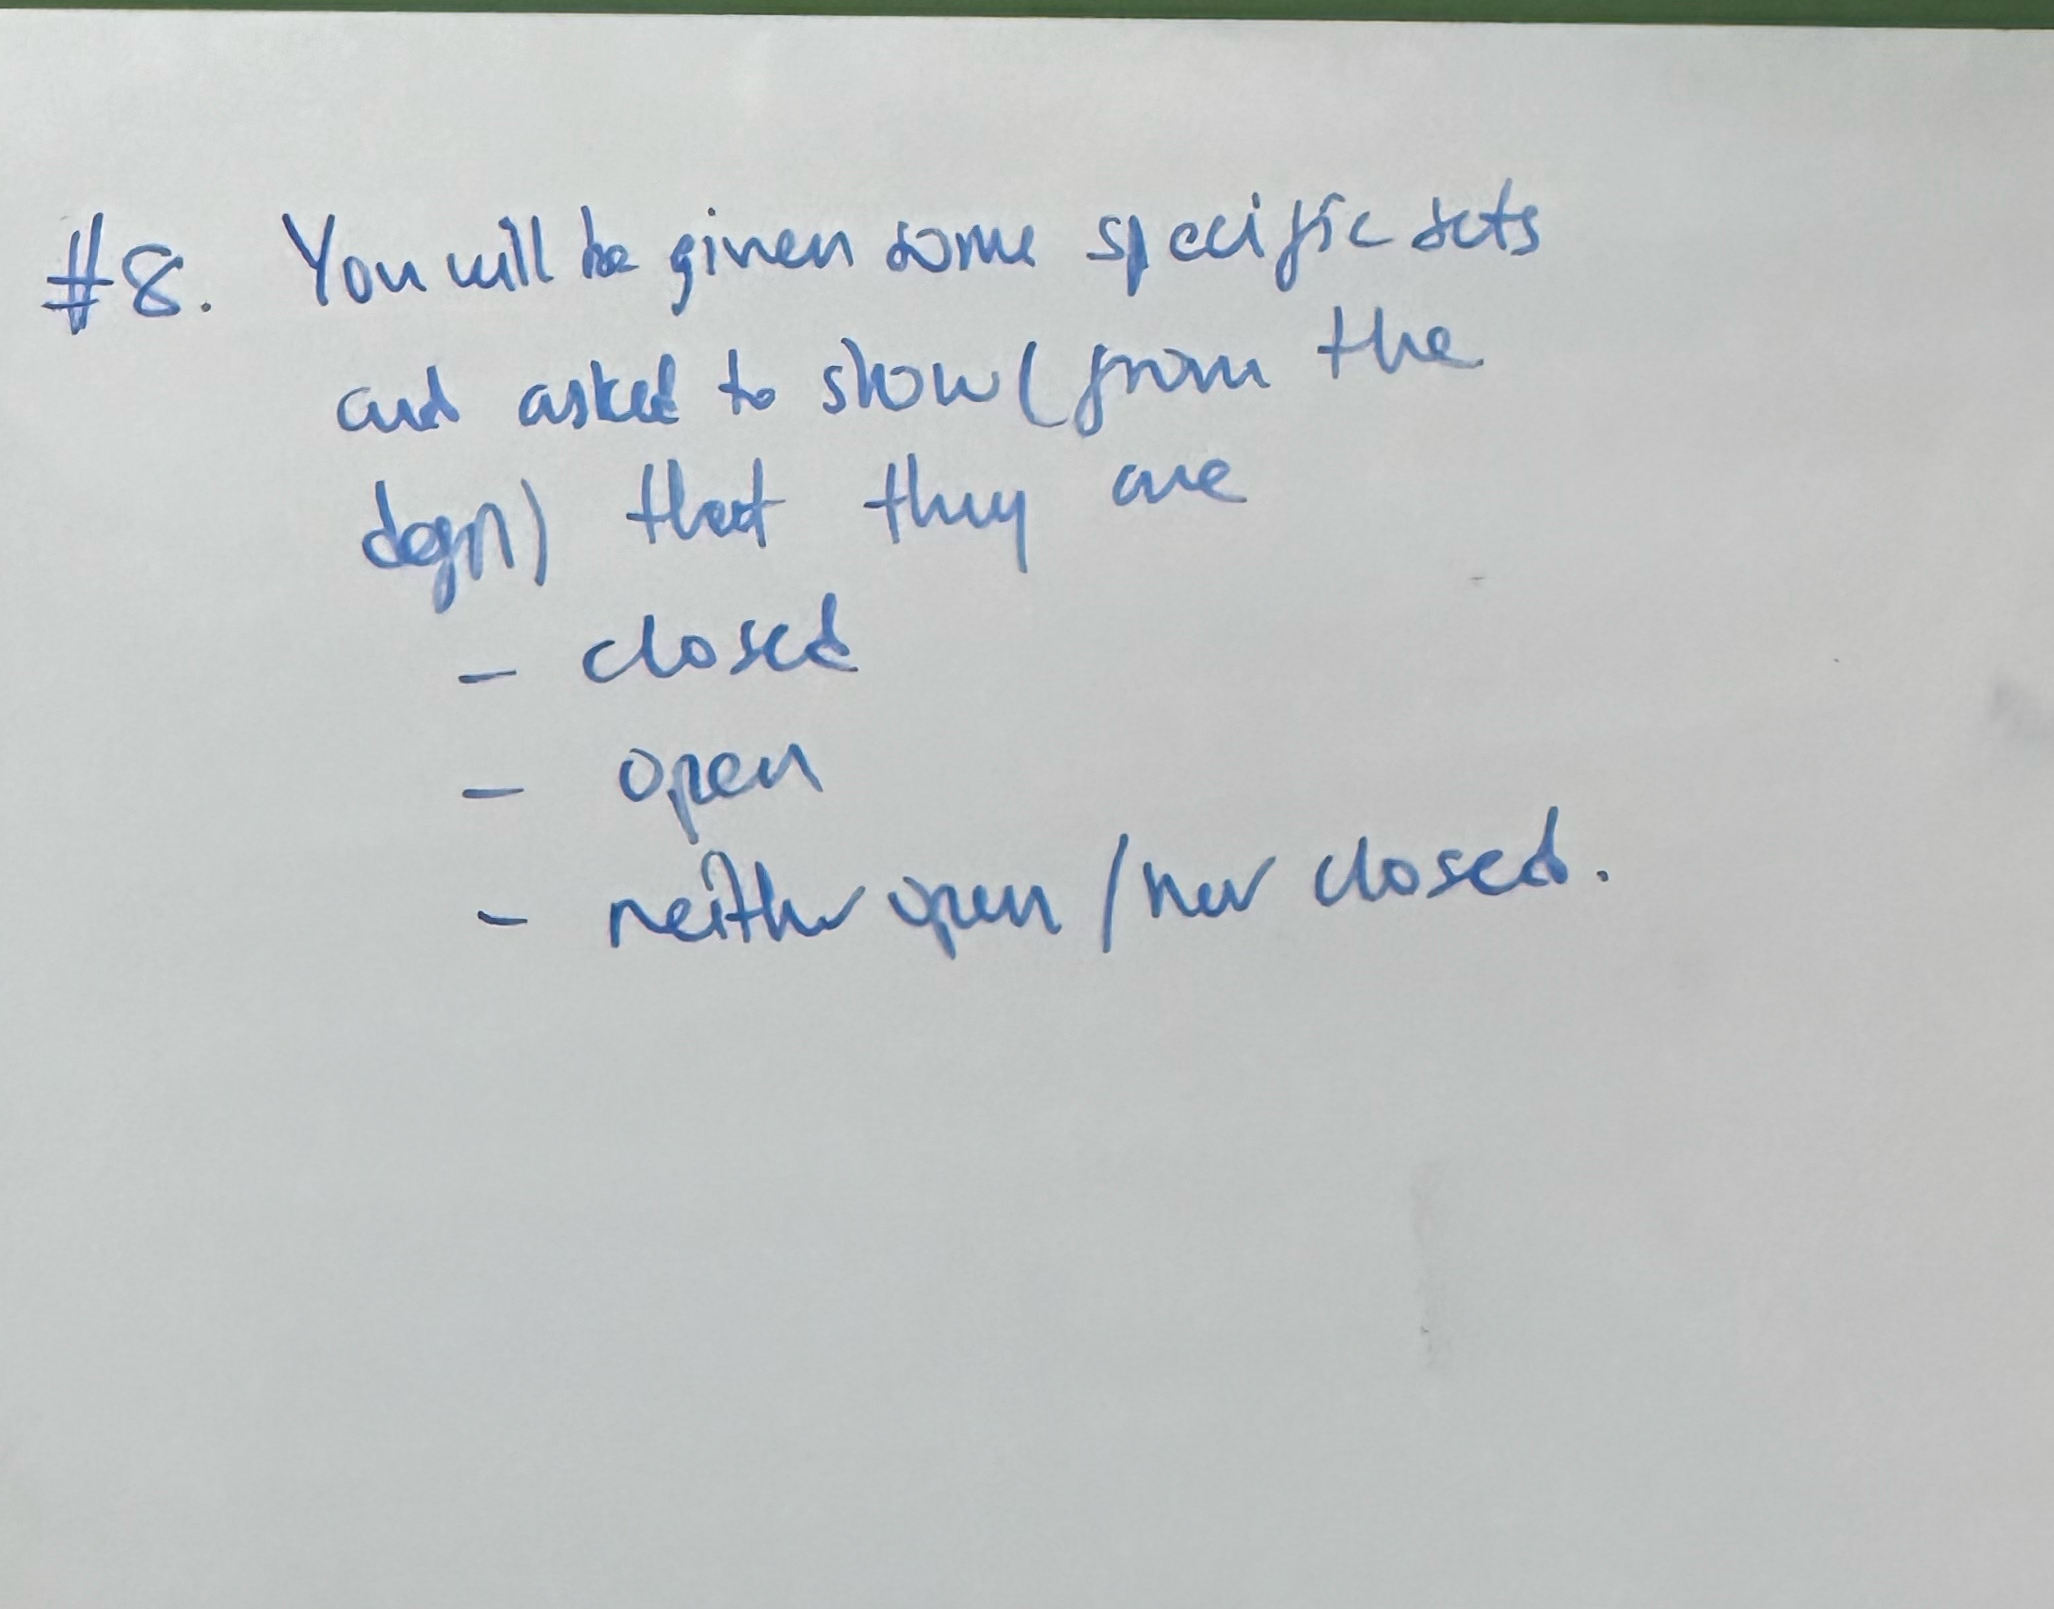 #8. You will be given some specific sets
and asked to show (from the
defn) that they are
- closed
- open
- neither open / nor closed.